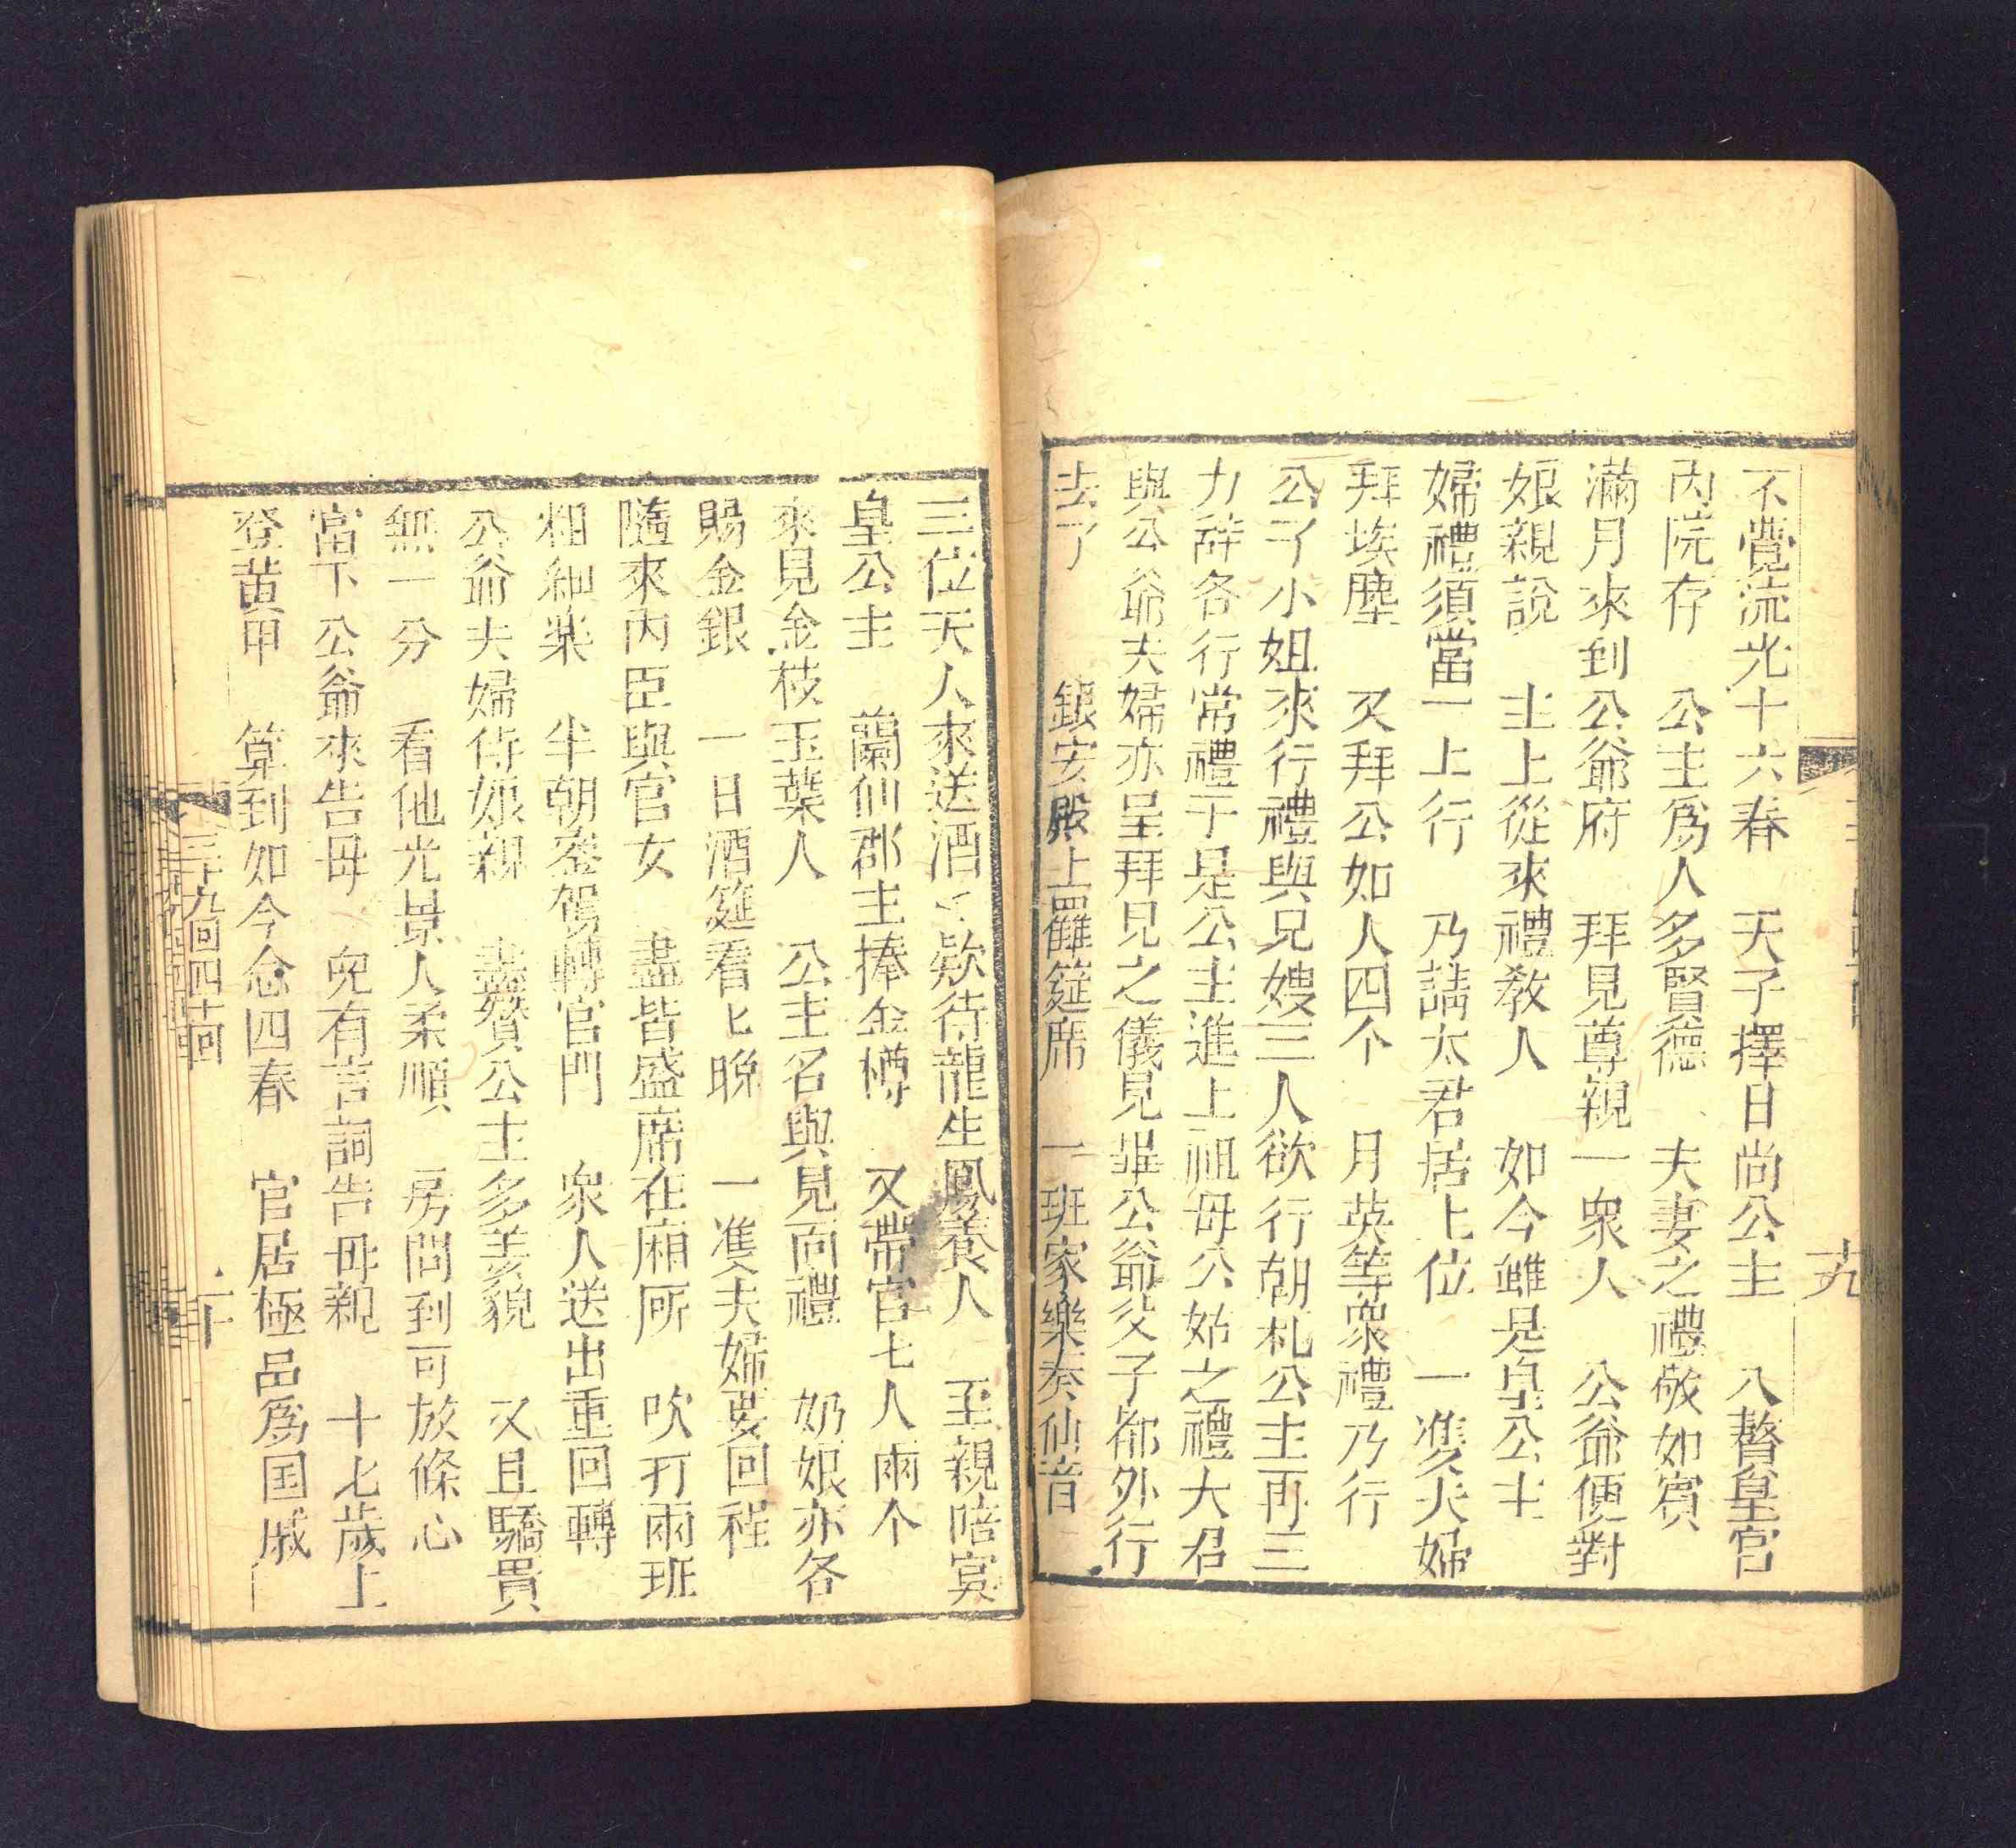 不覺流光十六春　天子擇日尚公主　入贅皇宫
内院存　公主爲人多賢德　夫妻之禮敬如賓
滿月來到公爺府　拜見尊親一衆人　公爺便對
娘親說　主上從來禮教人　如今雖是皇公主
婦禮須當一上行　乃請太君居上位　一隻夫婦
拜埃塵　又拜公如人四个　月英等衆禮乃行
公子小姐來行禮與兄嫂三人欲行朝札公主再三
力辞各行常禮于是公主進上祖母公姑之禮大君
與公爺夫婦亦呈拜見之儀見畢公爺父子都外行
去了　銀安殿上羅筵席　一班家樂奏仙音
十九
三位天人來送酒　欵待龍生鳳養人　至親陪宴
皇公主　蘭仙郡主捧金樽　又帶官七人兩个
來見金枝玉葉人　公主名與見面禮　奶娘亦各
賜金銀　一日酒筵看匕晚　一隻夫婦要回程
隨來内臣與官女　盡皆盛席在廂所　吹打兩班
粗細樂　半朝鑾駕轉宫門　衆人送出重回轉
公爺夫婦待娘親　盡贊公主多美貌　又且驕貴
無一分　看他光景人柔順　房問到可放條心
當下公爺來告母　兒有言詞告母親　十七歲上
登黃甲　算到如今念四春　官居極品爲国戚
三十九囘四十囘
二十